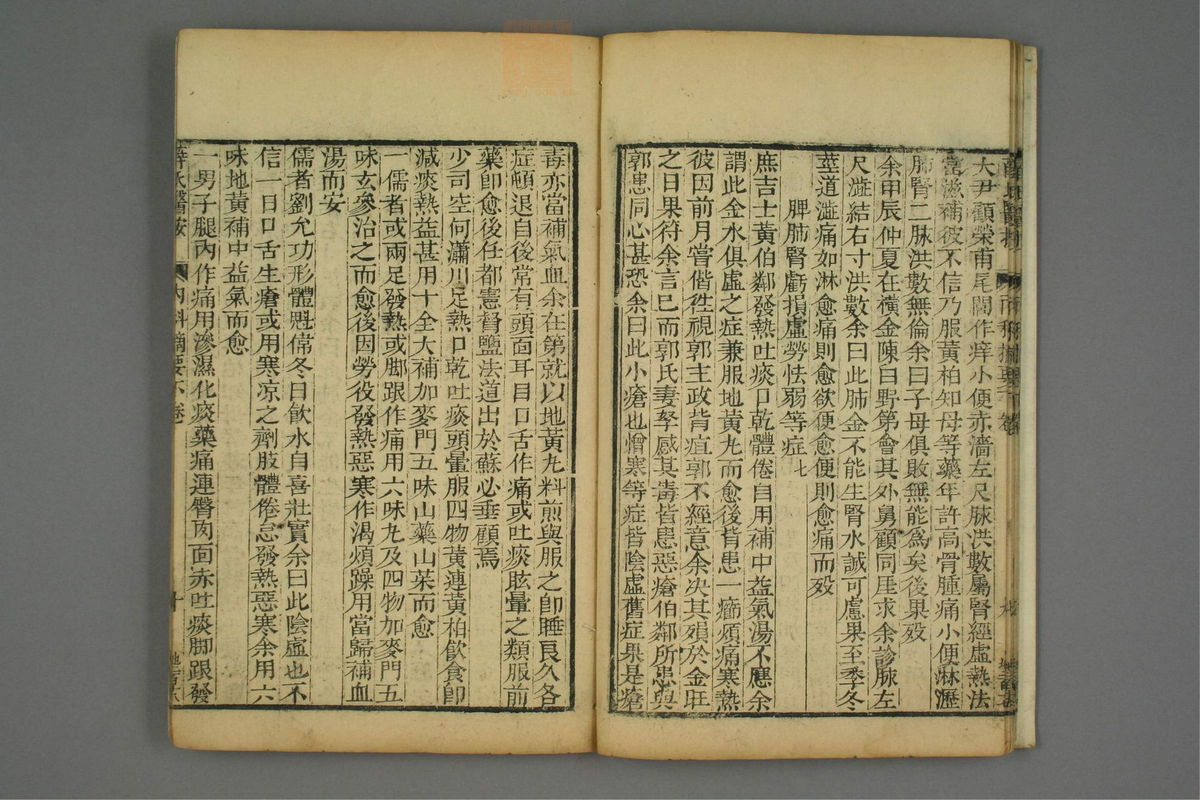 大尹顧榮甫尾閭作痒小便赤濇左尺脉洪數屬腎經虛熱法
當滋補彼不信乃服黃柏知母等藥年許高骨腫痛小便淋瀝
肺腎二脉洪數無倫余曰子母俱敗無能爲矣後果殁
余甲辰仲夏在橫金陳白野第會其外舅顧同厓求余診脉左
尺濇結右寸洪數余曰此肺金不能生腎水誠可慮果至季冬
莖道濇痛如淋愈痛則愈欲便愈便則愈痛而殁
脾肺腎虧損虛勞怯弱等症七
庶吉士黃伯鄰發熱吐痰口乾體倦自用補中益氣湯不應余
謂此金水俱虛之症兼服地黃丸而愈後背患一癤煩痛寒熱
彼因前月嘗偕徃視郭主政背疽郭不經意余决其殞於金旺
之日果符余言已而郭氏妻孥感其毒皆患惡瘡伯鄰所患與
郭患同心甚恐余曰此小瘡也憎寒等症皆陰虛舊症果是瘡
毒亦當補氣血余在第就以地黃丸料煎與服之卽睡良久各
症頓退自後常有頭面耳目口舌作痛或吐痰眩暈之類服前
藥卽愈後任都憲督鹽法道出於蘇必垂顧焉
少司空何瀟川足熱口乾吐痰頭暈服四物黃連黃柏飮食卽
減痰熱益甚用十全大補加麥門五味山藥山茱而愈
一儒者或兩足發熱或脚跟作痛用六味丸及四物加麥門五
味玄參治之而愈後因勞役發熱惡寒作渴煩躁用當歸補血
湯而安
儒者劉允功形體魁偉冬日飮水自喜壯實余曰此陰虛也不
信一日口舌生瘡或用寒凉之劑肢體倦怠發熱惡寒余用六
味地黃補中益氣而愈
一男子腿內作痛用滲濕化痰藥痛連臀肉面赤吐痰脚跟發
薛氏醫按 內科摘要下卷 十